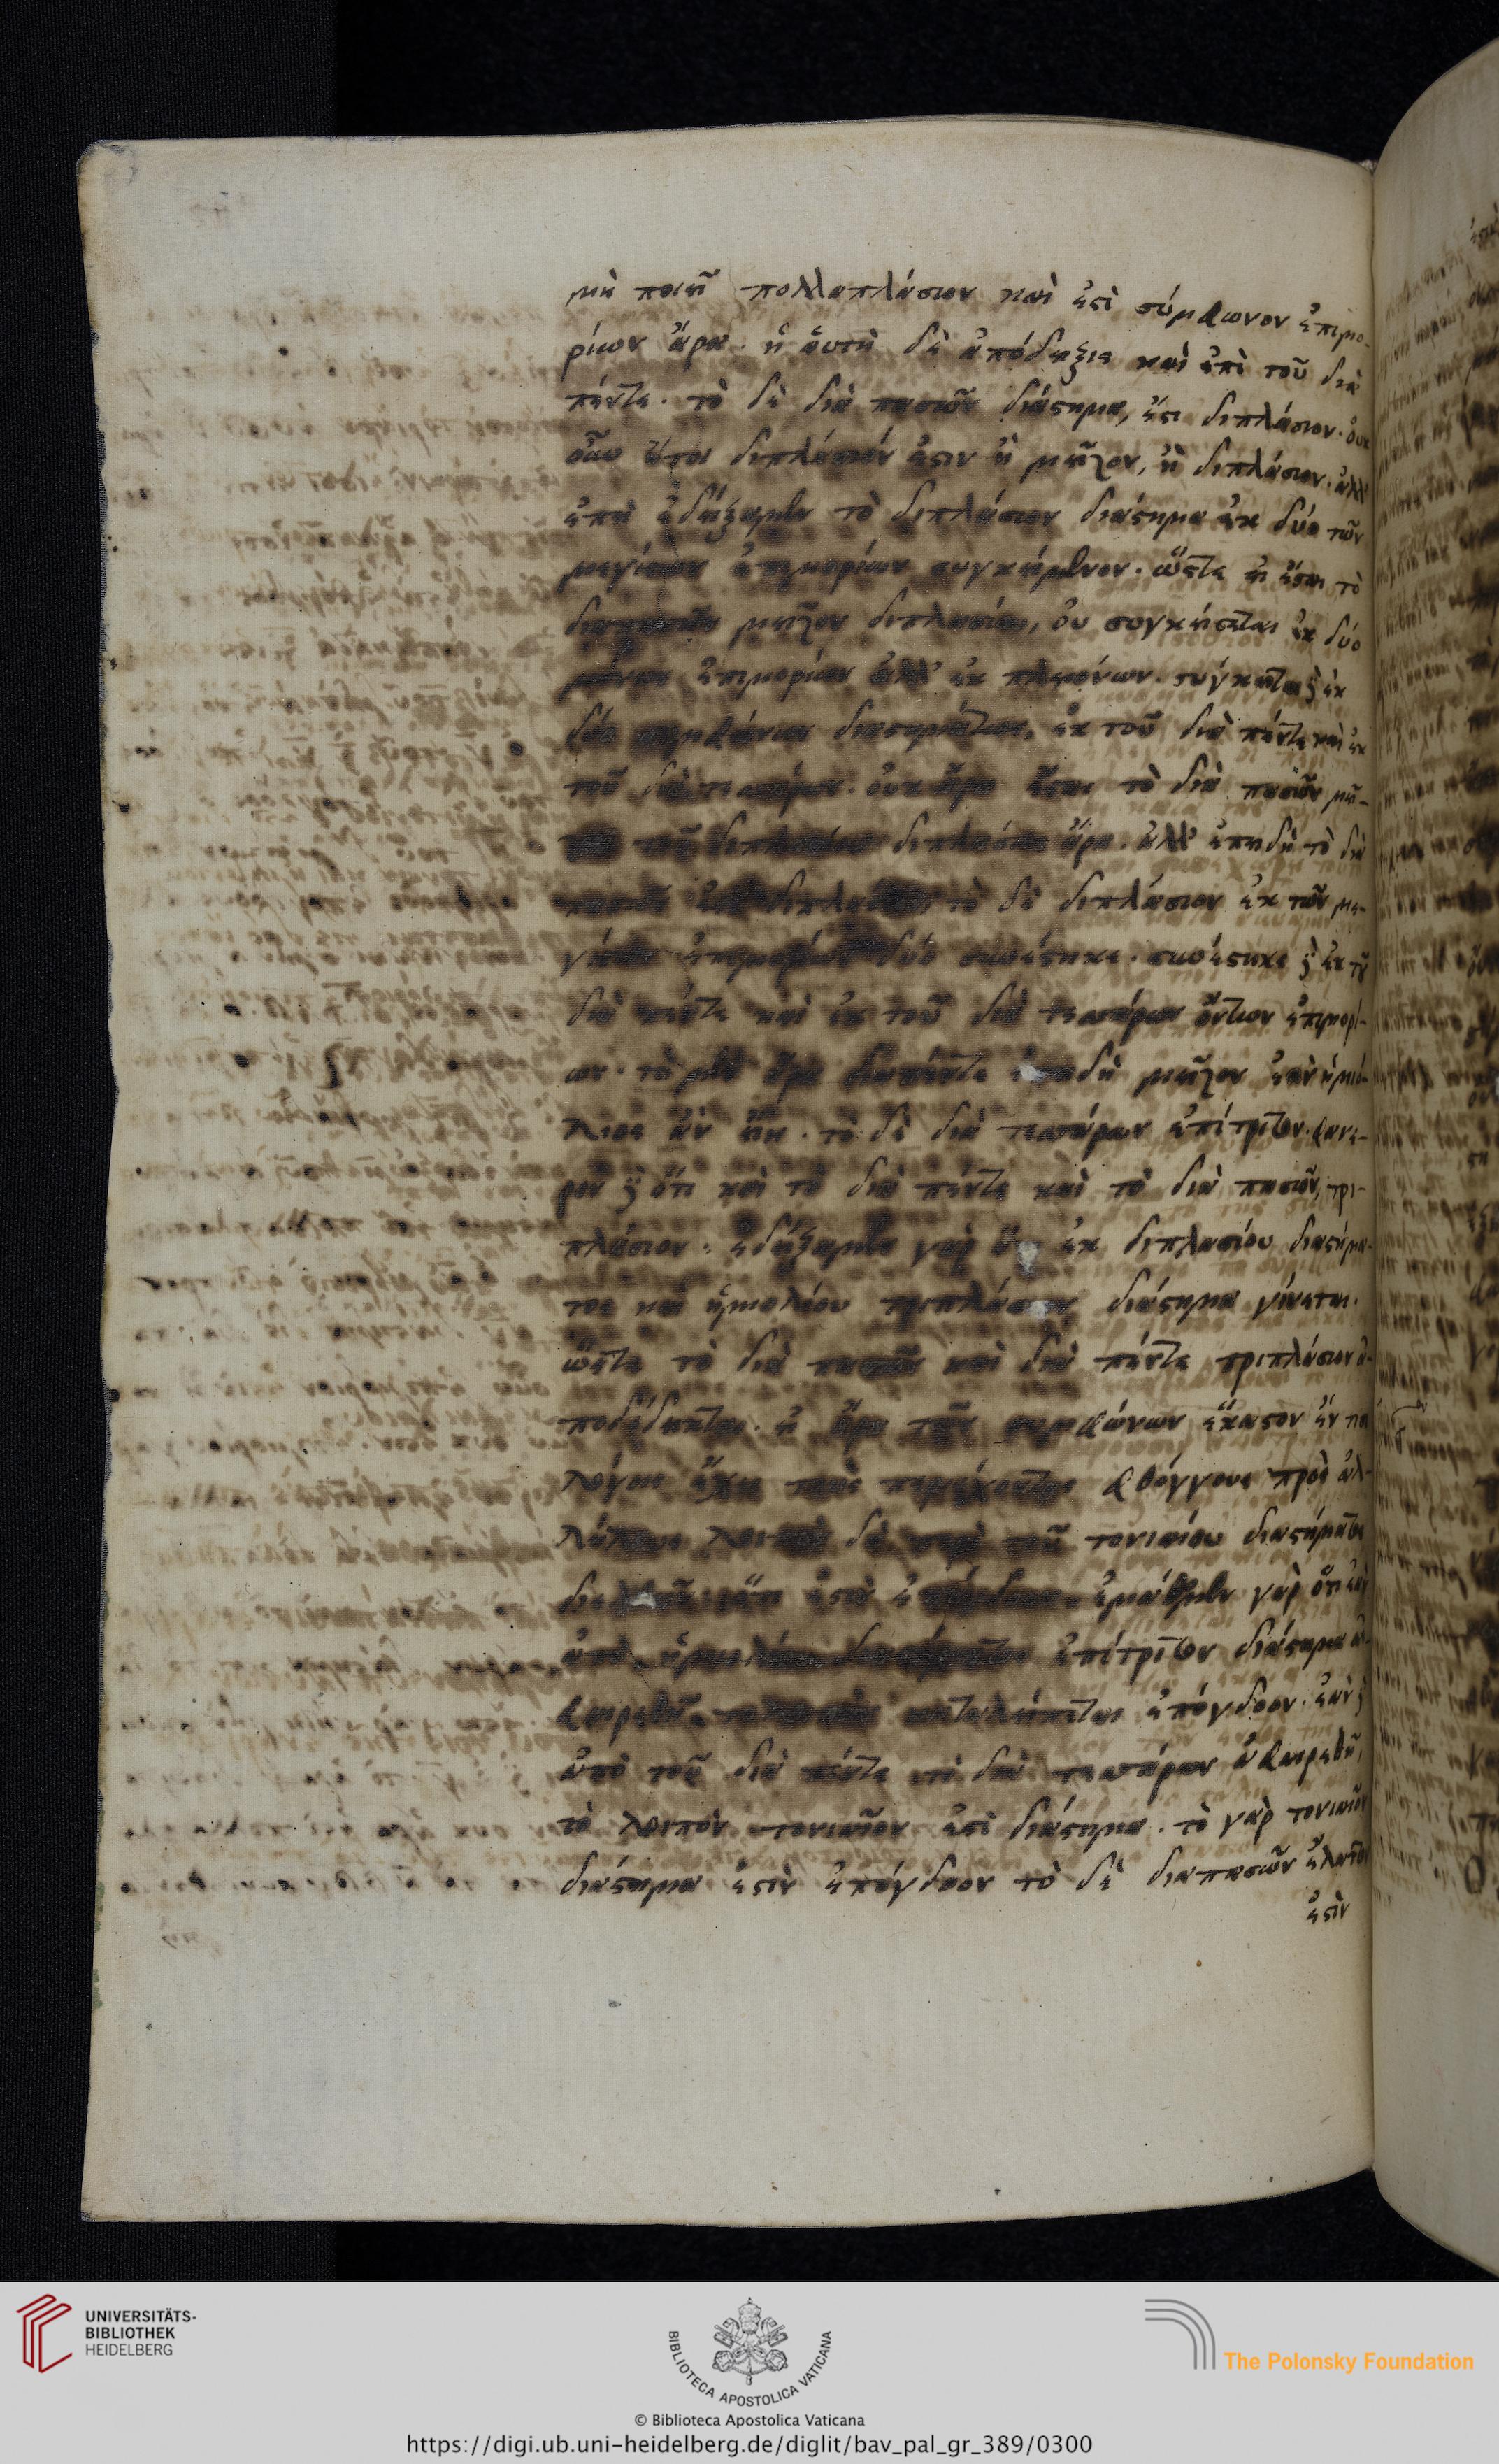 μὴ ποιεῖ πολλαπλάσιον καὶ ἐστὶ σύμφωνον ἐπιμο-
ρίων ἄρα. ἡ ἀυτὴ δὲ ἀπόδειξις καὶ ἐπὶ τοῦ διὰ
πέντε. τὸ δὲ διὰ πασῶν διάστημα, ἔστι διπλάσιον.
ἤτοι διπλάσιόν ἐστιν ἢ μεῖζον, ἢ διπλάσιον. ἀλλ'
ἐπεὶ ἐδείξαμεν τὸ διπλάσιον διάστημα ἐκ δύο τῶν
μεγίστων ἐπιμορίων συγκείμενον. ὥστε εἰ ἔσται τὸ
διαπασῶν μεῖζον διπλασίου, ὀυ συγκείσεται ἐκ δύο
μόνων ἐπιμορίων ἀλλ' ἐκ πλειόνων. σύγκειται δὲ ἐκ
δύο συμφώνων διαστημάτων, ἐκ τοῦ διὰ πέντε καὶ ἐκ
τοῦ διὰ τεσσάρων. ὀυκ ἄρα ἔσται τὸ διὰ πασῶν μεῖ-
τοῦ διπλασίου διπλάσιον ἄρα. ἀλλ' ἐπειδὴ τὸ διὰ
πασῶν διπλάσιον τὸ δὲ διπλάσιον ἐκ τῶν με-
γίστων ἐπιμορίων δύο συνέστηκε. συνέστηκε δὲ ἐκ τοῦ
διὰ πέντε καὶ ἐκ τοῦ διὰ τεσσάρων ὄντων ἐπιμορί-
ων. τὸ μὲν ἄρα διαπέντε ἐπειδὴ μεῖζον ἐστὶν ἡμιό-
λιος ἂν εἴη. τὸ δὲ διὰ τεσσάρων ἐπίτριτον. φανε-
ρὸν δὲ ὅτι καὶ τὸ διὰ πέντε καὶ τὸ διὰ πασῶν, τρι-
πλάσιον. ἐδείξαμεν γὰρ ὅτι ἐκ διπλασίου διαστήμα-
τος καὶ ἡμιολίου τριπλάσιον διάστημα γίνεται.
ὥστε τὸ διὰ πασῶν καὶ διὰ πέντε τριπλάσιον ἀ-
ποδέδεικται. ἄρα τῶν συμφώνων ἕκαστον ἐν τισι
λόγοις ἔχει τοὺς περιέχοντας φθόγγους πρὸς ἀλ-
λήλους λοιπὸν δὲ περὶ τοῦ τονιαίου διαστήματος
διελθεῖν ὅτι ἐστὶν ἐπόγδοον ἐμάθομεν γὰρ ὅτι ἐὰν
ἀπὸ ἡμιολίου διαστήματος ἐπίτριτον διάστημα ἀ-
φαιρεθῇ, καταλείπεται ἐπόγδοον. ἐὰν δὲ
ἀπὸ τοῦ διὰ πέντε τὸ διὰ τεσσάρων ἀφαιρεθῇ,
τὸ λοιπὸν τονιαῖον ἐστὶ διάστημα. τὸ γὰρ τονιαῖον
διάστημα ἐστὶν ἐπόγδοον τὸ δὲ διαπασῶν ἔλαττον
ἐστὶν
UNIVERSITÄTS-
BIBLIOTHEK
HEIDELBERG
BIBLIOTECA APOSTOLICA VATICANA
The Polonsky Foundation
© Biblioteca Apostolica Vaticana
https://digi.ub.uni-heidelberg.de/diglit/bav_pal_gr_389/0300